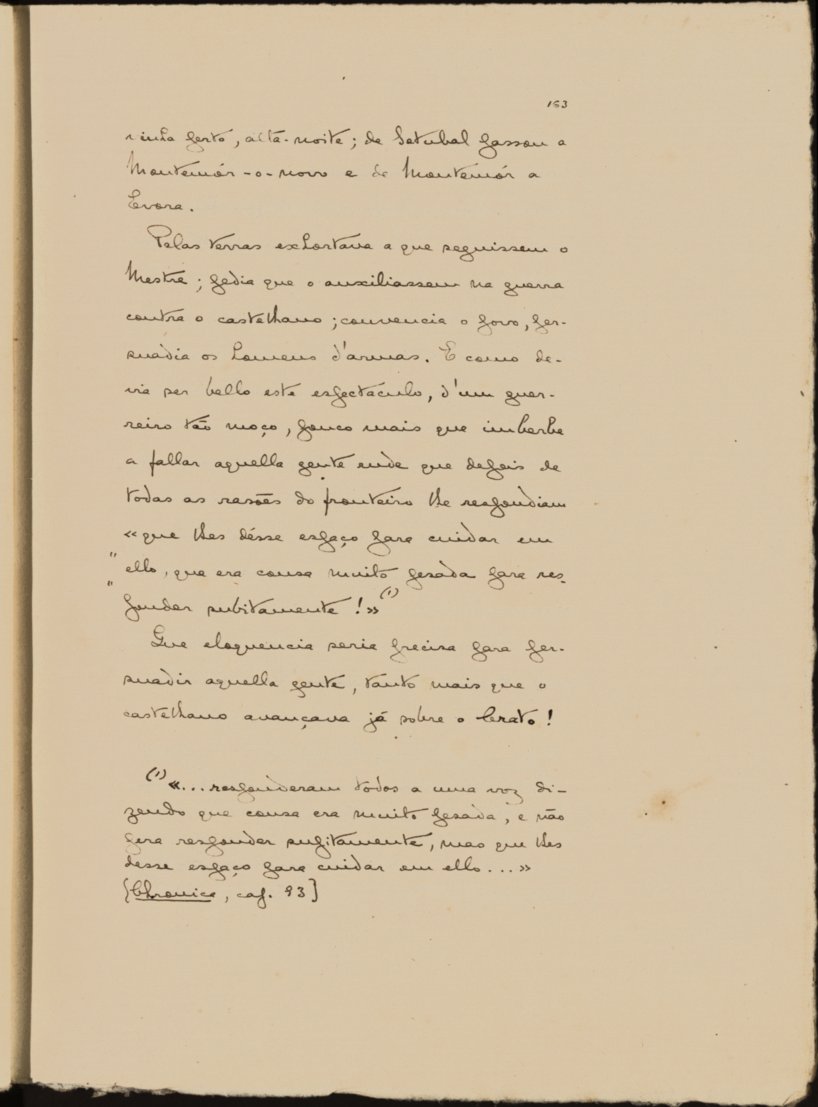 163
vinha perto, alta-noite; de Setubal passou a
Montemór-o-novo e de Montemór a
Evora.
Pelas terras exhortava a que seguissem o
Mestre; pedia que o auxiliassem na guerra
contra o castelhano; convencia o povo, per-
suadia os homens d'armas. E como de-
via ser bello este espectáculo, d'um guer-
reiro tão moço, pouco mais que imberbe
a fallar aquella gente rude que depois de
todas as rasões do fronteiro lhe respondiam
«que lhes désse espaço para cuidar em
" ello, que era cousa muito pesada para res-
" ponder subitamente!» (1)
Que eloquencia seria precisa para per-
suadir aquella gente, tanto mais que o
castelhano avançava já sobre o Crato!
(1) «...responderam todos a uma voz di-
zendo que cousa era muito pesada, e não
pera responder supitamente, mas que lhes
desse espaço para cuidar em ello...»
[Chronica, cap. 93]